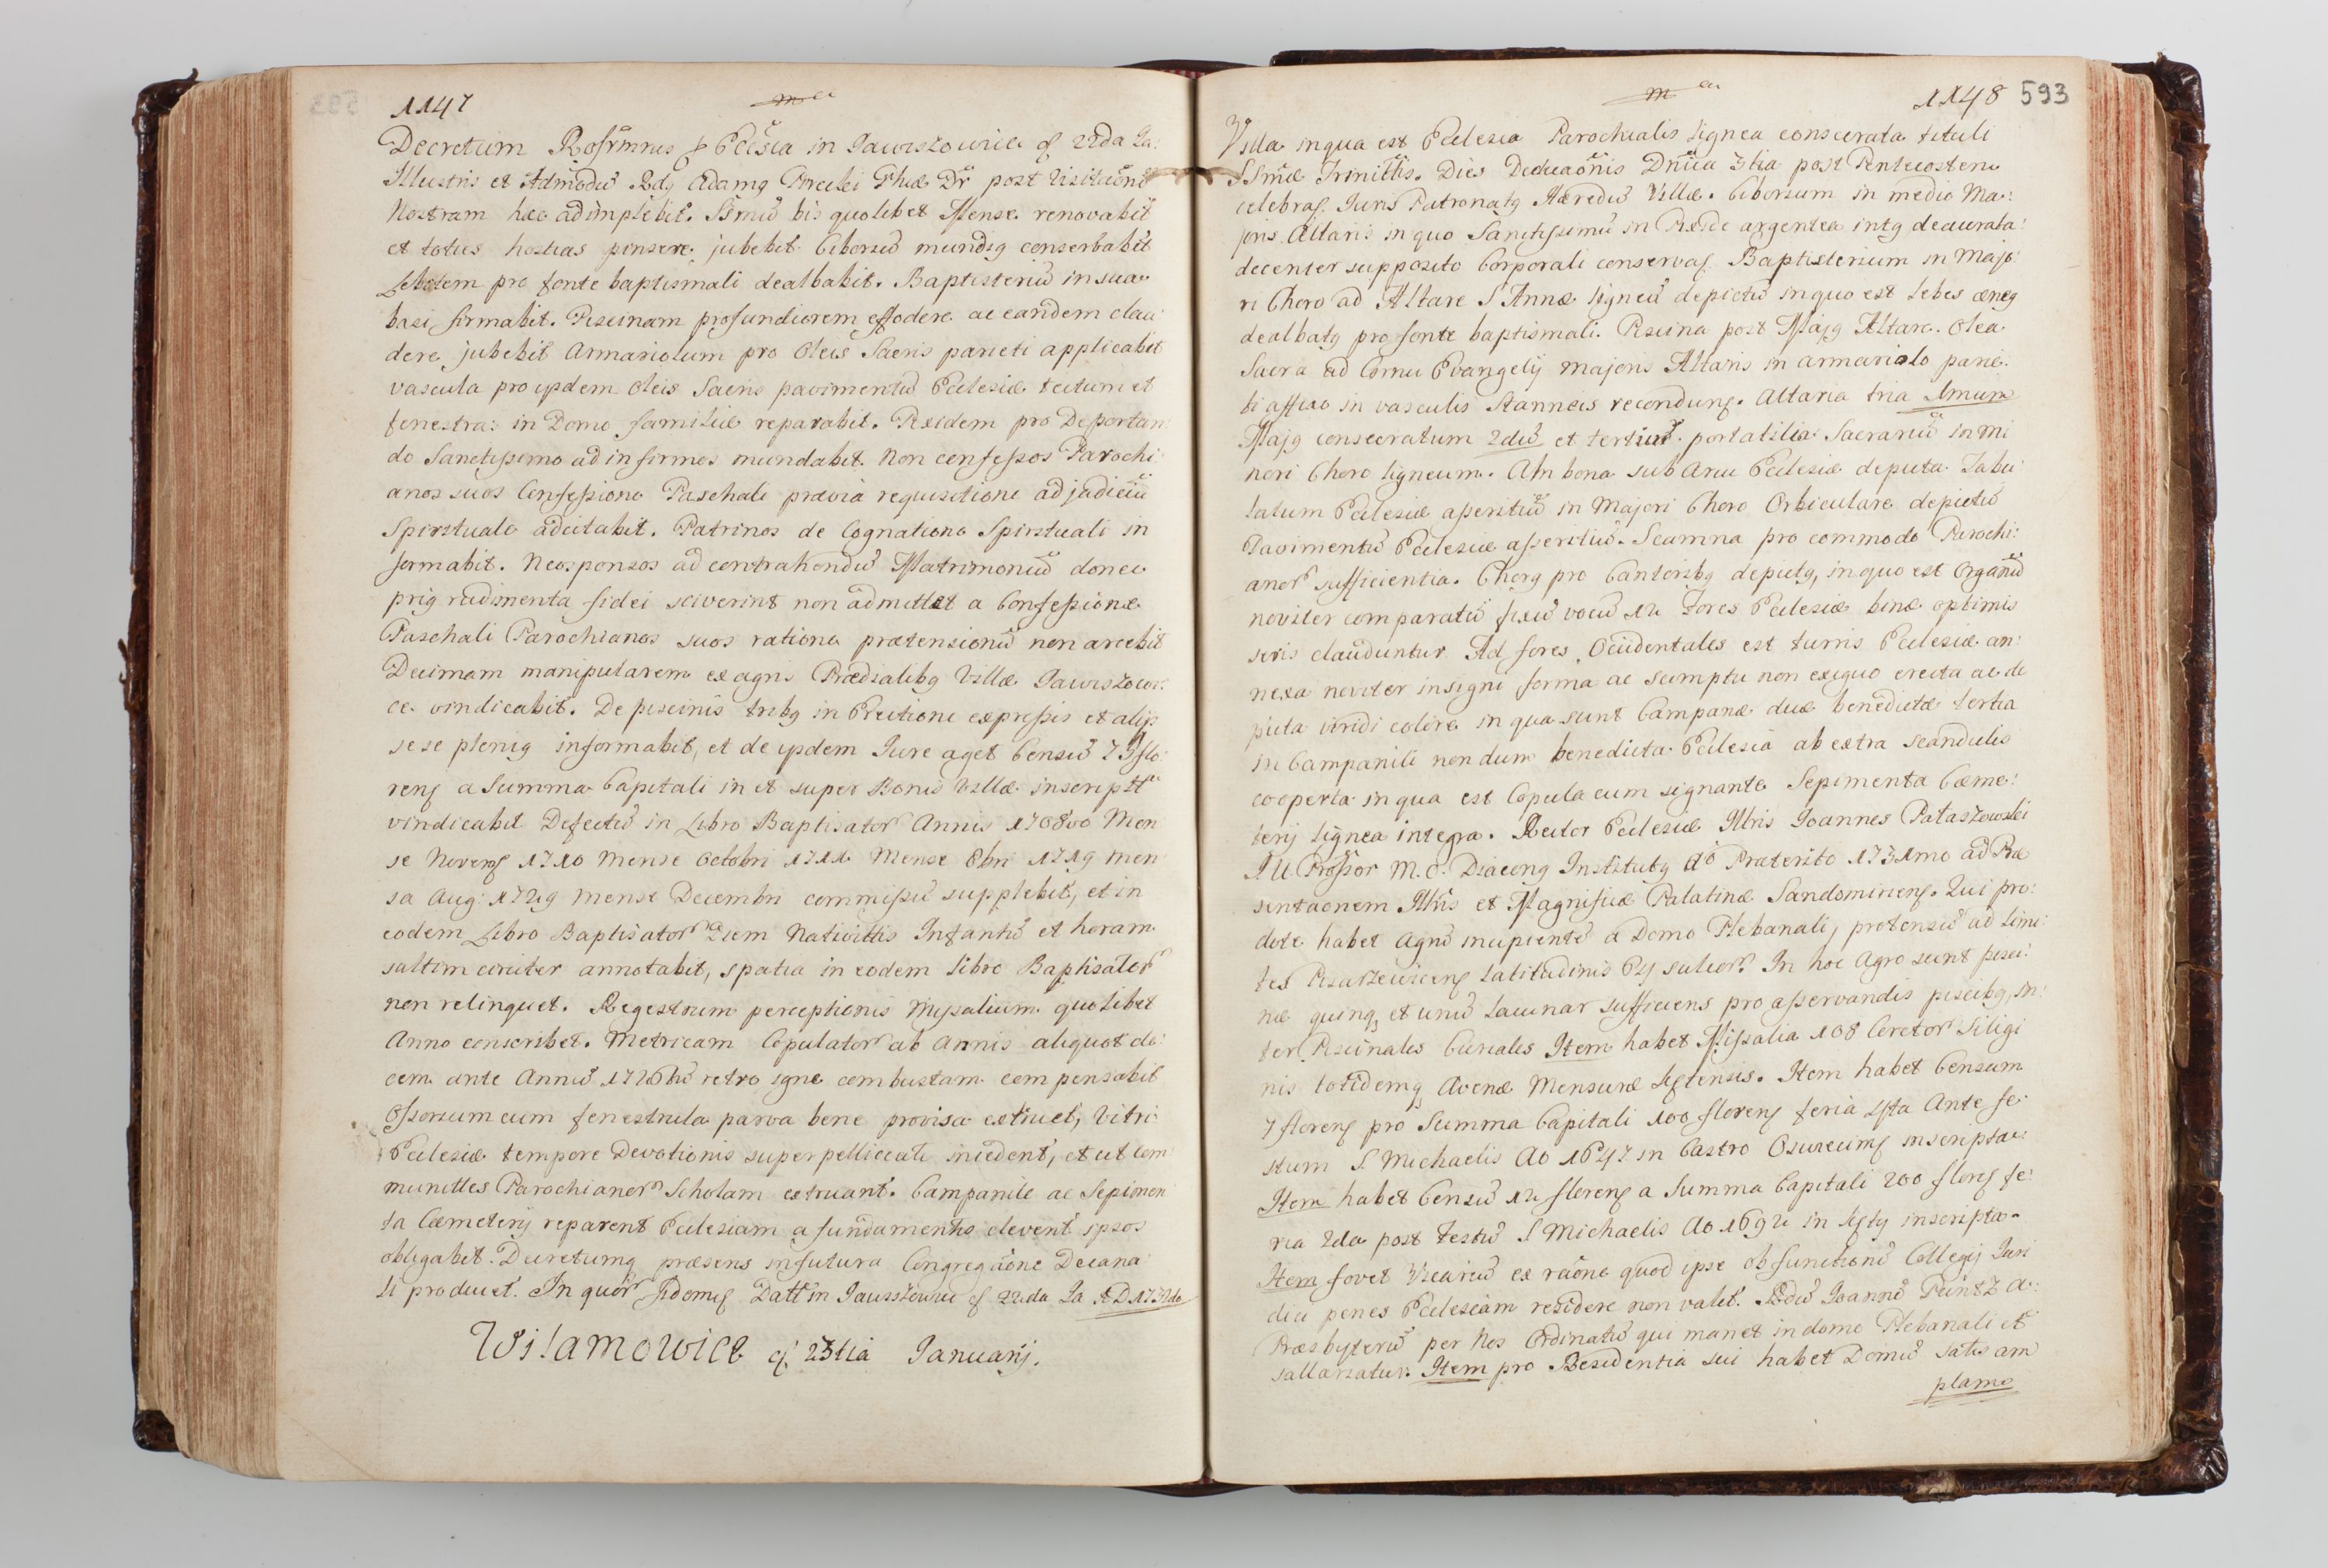 1147
m
Decretum Reformnis p Eccsia in Jawiszowice 22da Ja:
Illustris et Admodũ Rdg Adamg Porcelei Phiæ Dr post visitaõne
Nostram hæc adimplebit. SSmũ bis quolibet Mense renovabit
et toties hostias pinsere jubebit Ciboriũ mundig conserbabit
Lebetem pro fonte baptismali dealbabit. Baptisteriũ in sua
basi firmabit. Piscinam profundiorem effodere ac eandem clau
dere jubebit Armariolum pro Oleis Sacris parieti applicabit
vascula pro ijsdem Oleis Sacris pavimentũ Ecclesiæ tectum et
fenestra: in Domo familiæ reparabit. Pixidem pro Deportan:
do Sanctissimo ad infirmos mundabit. Non confessos Parochi
anos suos Confessione Paschali prævia requisitione ad judiciũ
Spirituale adcitabit. Patrinos de Cognatione Spirituali in
formabit. Neosponsos ad contrahendũ Matrimoniũ donec
prig rudimenta fidei sciverint non admittet a Confessione
Paschali Parochianos suos ratione prætensionũ non arcebit
Decimam manipularem ex agris Prædialibg Villæ Jawiszowi:
ce vindicabit. De piscinis tribg in Erectione expressis et alijs
sese plenig informabit, et de ijsdem Jure aget Censũ 7 flo:
reng a Summa Capitali in et super Bonis Villæ inscript
vindicabit Defectũ in Libro Baptisator Annis 1708vo Men
se Novemb 1710 Mense Octobri 1711 Mense 8bri 1719 men
se Aug: 1729 mense Decembri commissũ supplebit, et in
eodem Libro Baptisator Diem Nativittis Infantũ et horam
saltim circiter annotabit, spatia in eodem libro Baptisator
non relinquet. Regestrum perceptionis Missalium quolibet
Anno conscribet. Metricam Copulator ab Annis aliquot de:
cem ante Annũ 1726tũ retro igne combustam compensabit
Ossorium cum fenestrula parva bene provisa extruet, Vitri:
Ecclesiæ tempore Devotionis superpelliceati incedent, et ut com
munittes Parochianor Scholam extruant. Campanile ac Sepimen
ta Cæmeterij reparent Ecclesiam a fundamentis elevent ipsos
obligabit. Decretumq præsens in futura Congregaõne Decana
li producet. In quor fidemg Datt in Jawiszowice 22da Ja A D 1732do
Wilamowice 23tia Januarij.
m
1148 593
Villa in qua est Ecclesia Parochialis lignea consecrata tituli
SSmæ Trinittis. Dies Dedicaõnis Dnica 3tia post Pentecosten
celebra. Juris Patronatg Hæredũ Villæ. Ciborium in medio Ma:
joris Altaris in quo Sanctissimũ in Pixide argentea intg deaurata
decenter supposito Corporali conserva. Baptisterium in Majo:
ri Choro ad Altare S Annæ ligneũ depictũ in quo est lebes æneg
dealbatg pro fonte baptismali. Piscina post Majg Altare. Olea
Sacra ad Cornu Evangelij majoris Altaris in armariolo parie:
ti affixo in vasculis stanneis recondung. Altaria tria 1mum
Majg consecratum 2dũ et tertiũ portatilia. Sacrariũ in mi
nori Choro ligneum. Ambona sub Arcu Ecclesiæ depicta Tabu
latum Ecclesiæ asseritiũ in Majori Choro Orbiculare depictũ
Pavimentũ Ecclesiæ asseritiũ. Scamna pro commodo Parochi:
anor sufficientia. Chorg pro Cantoribg depictg, in quo est Organũ
noviter comparatũ fixũ vocũ 12 Fores Ecclesiæ binæ optimis
seris clauduntur Ad fores Occidentales est turris Ecclesiæ an:
nexa noviter insigni forma ac sumptu non exiguo erecta ac de
picta viridi colore in qua sunt Campanæ duæ benedictæ tertia
in Campanili nondum benedicta. Ecclesia ab extra scandulis
cooperta in qua est Copula cum signante Sepimenta Cæme:
terij lignea integra. Rector Ecclesiæ Illris Joannes Pataszowski
J U Professor M.C. Diaceng Institutg Aõ Præterito 1731mo ad Præ
sentaonem Illris et Magnificæ Palatinæ Sandomirieng. Qui pro:
dote habet Agrũ incipientũ a Domo Plebanali, protensũ ad limi:
tes Pisarzowiceng latitudinis 64 sulcor. In hoc Agro sunt pisci:
næ quinq et unũ Lacunar sufficiens pro asservandis piscibg, in:
ter Piscinales Curiales Item habet Missalia 108 Ceretor Siligi
nis totidemq Avenæ Mensuræ Kętensis. Item habet Censum
7 floreng pro Summa Capitali 100 floreng feria 4ta Ante fe:
stum S. Michaelis Ao 1647 in Castro Osvecimg inscripta:
Item habet Censũ 12 floreng a Summa Capitali 200 floreg fe:
ria 2da post Festũ S Michaelis Ao 1692 in Kęty inscripta.
Item fovet Vicariũ ex raõne quod ipse ob functionũ Collegij Juri
dici penes Ecclesiam residere non valet. Rdũ Joannũ Peintz A:
Præsbyterũ per Nos Ordinatũ qui manet in domo Plebanali et
sallariatur. Item pro Residentia sui habet Domũ satis am
plam